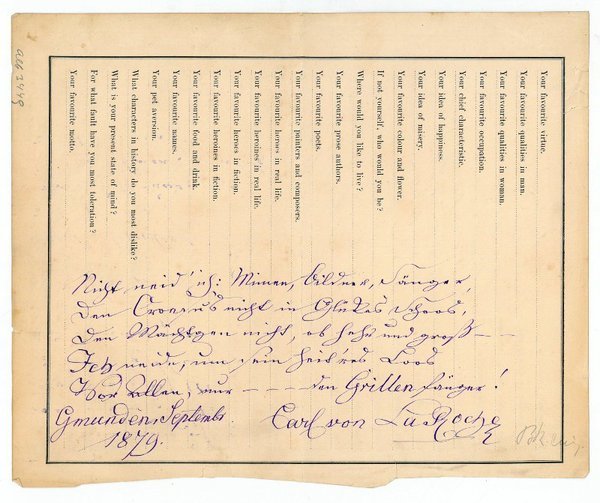 Your favourite virtue.
Your favourite qualities in man.
Your favourite qualities in woman.
Your favourite occupation.
Your chief characteristic.
Your idea of happiness.
Your idea of misery.
Your favourite colour and flower.
If not yourself, who would you be?
Where would you like to live?
Your favourite prose authors.
Your favourite poets.
Your favourite painters and composers.
Your favourite heroes in real life.
Your favourite heroines in real life.
Your favourite heroes in fiction.
Your favourite heroines in fiction.
Your favourite food and drink.
Your favourite names.
Your pet aversion.
What characters in history do you most dislike?
What is your present state of mind?
For what fault have you most toleration?
Your favourite motto.
Nicht neid' ich: Mimen, Bildner, Sänger,
Den Croesus nicht in Glückes Schoos,
Den Mächtgen nicht, ob hehr und groß – –
Ich neide, um sein heit'res Loos
Vor Allen, nur – – – den Grillenfänger!
Gmunden, Septembr
1879.
Carl von LaRoche